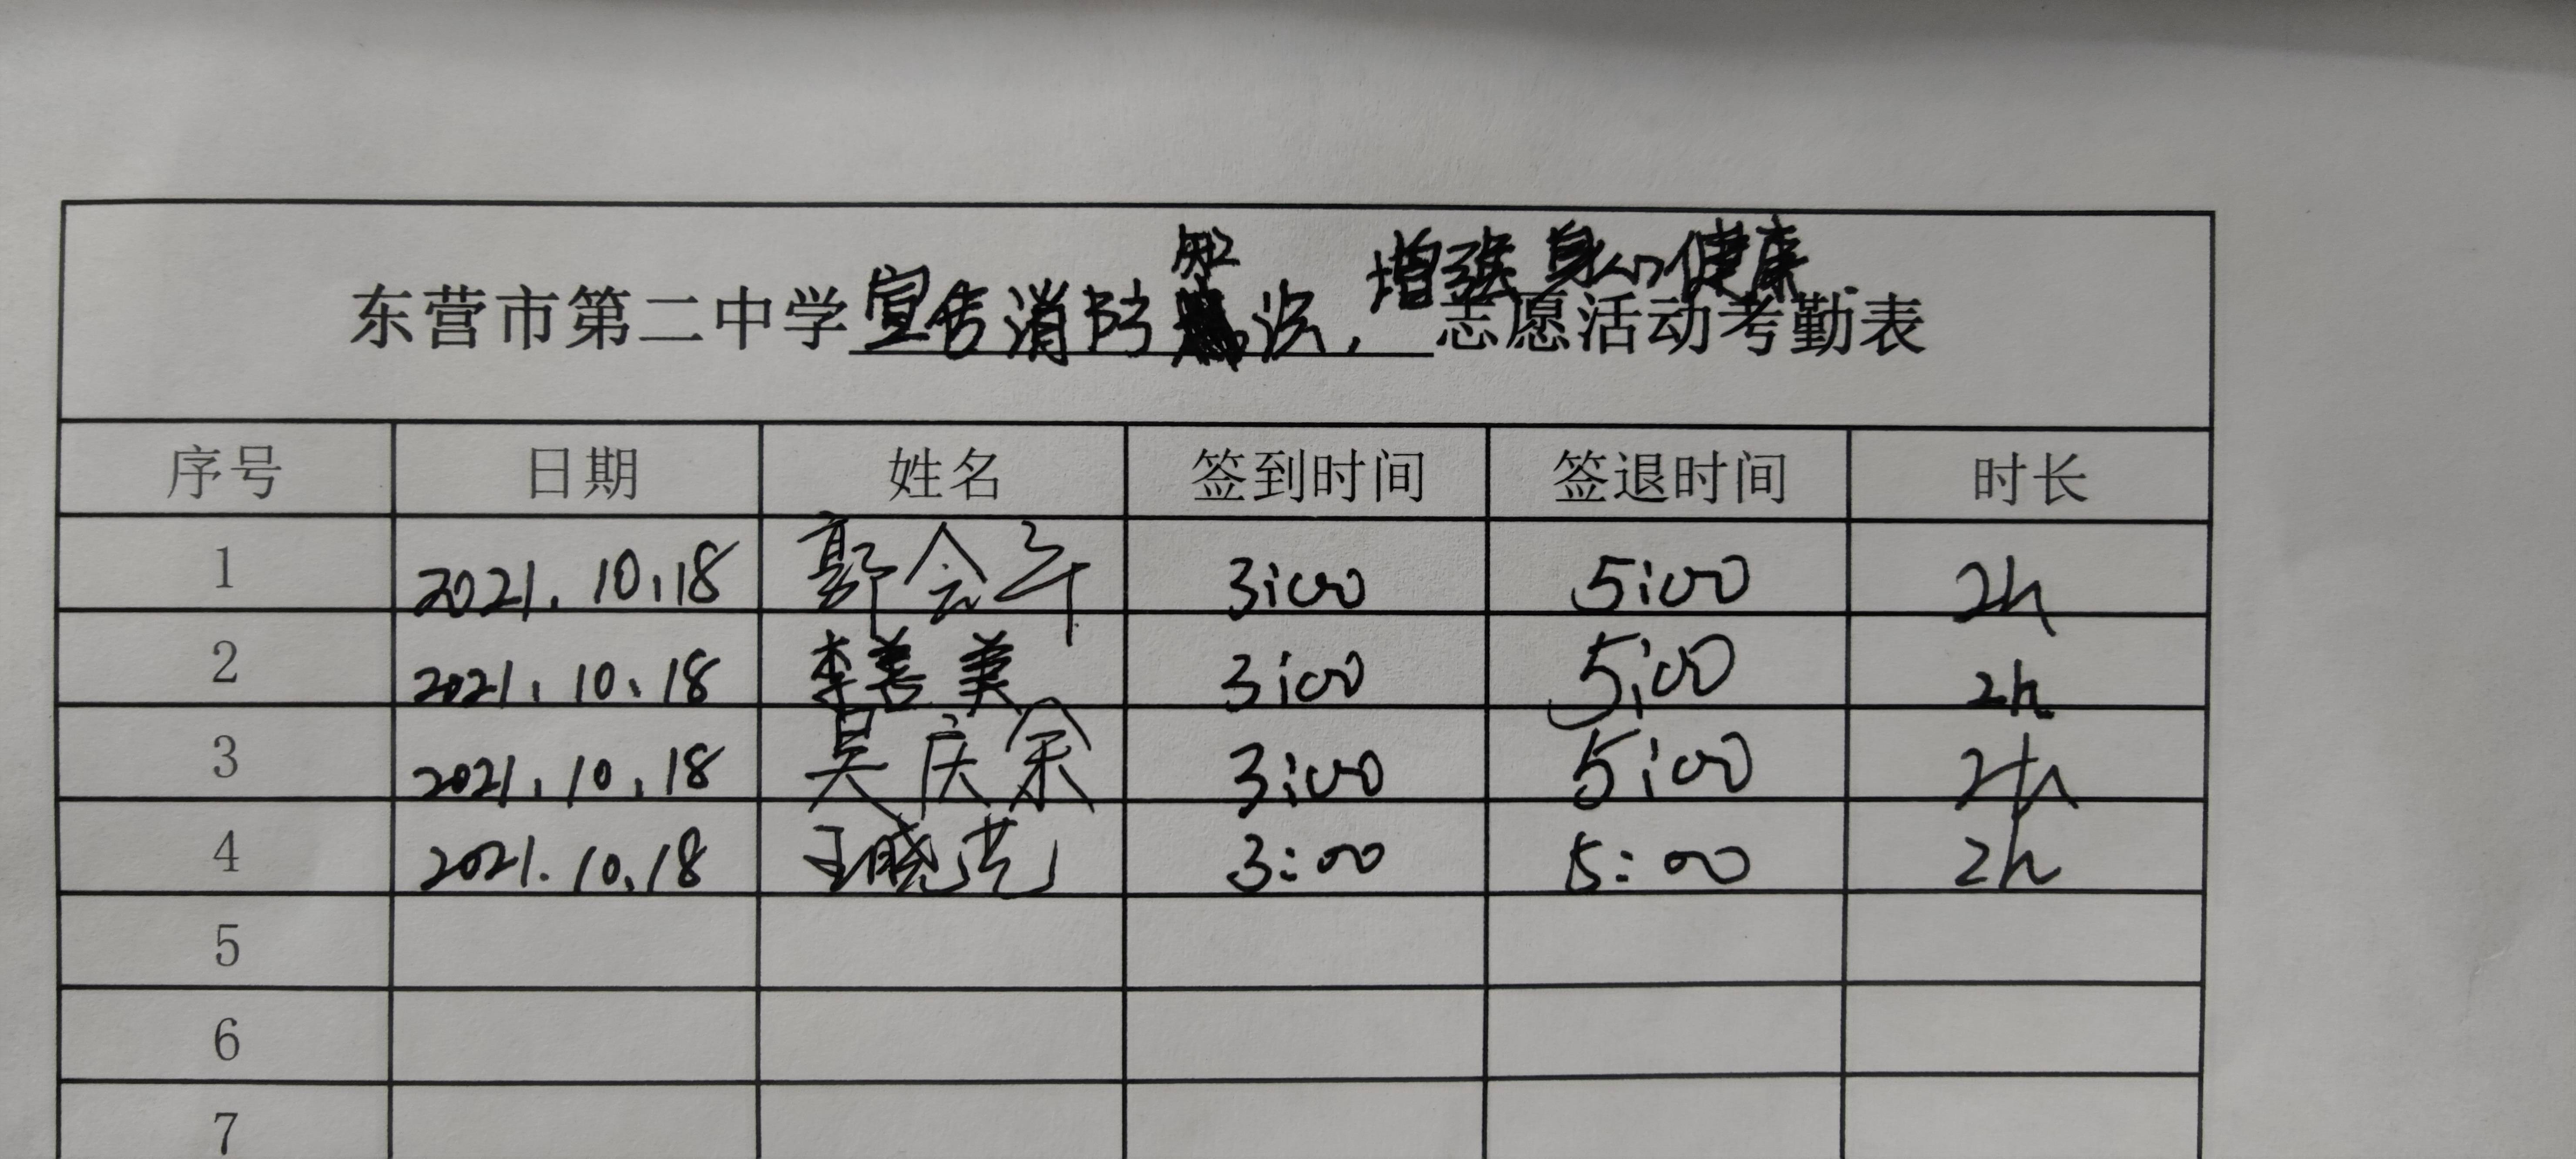 东营市第二中学宣传消防知识，增强身心健康.志愿活动考勤表
序号 日期 姓名 签到时间 签退时间 时长
1 2021.10.18 郭会军 3:00 5:00 2h
2 2021.10.18 李善美 3:00 5:00 2h
3 2021.10.18 吴庆余 3:00 5:00 2h
4 2021.10.18 王晓艺 3:00 5:00 2h
5
6
7